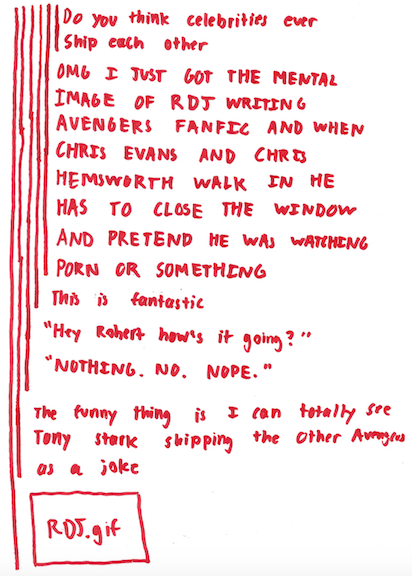 Do you think celebrities ever
Ship each other
OMG I JUST GOT THE MENTAL
IMAGE OF RDJ WRITING
AVENGERS FANFIC AND WHEN
CHRIS EVANS AND CHRIS
HEMSWORTH WALK IN HE
HAS TO CLOSE THE WINDOW
AND PRETEND HE WAS WATCHING
PORN OR SOMETHING
This is fantastic
"Hey Robert how's it going?"
"NOTHING. NO. NOPE."
The funny thing is I can totally see
Tony stark shipping the other Avengers
as a joke
RDJ.gif